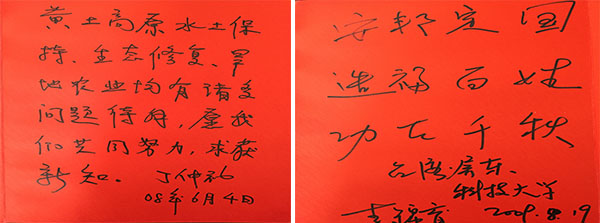 黄土高原水土保
持、生态修复、旱
地农业均有诸多
问题待解，愿我
们共同努力，求获
新知。丁仲礼
08年6月4日
安邦定国
造福百姓
功在千秋
台湾屏东
科技大学
2008.8.19